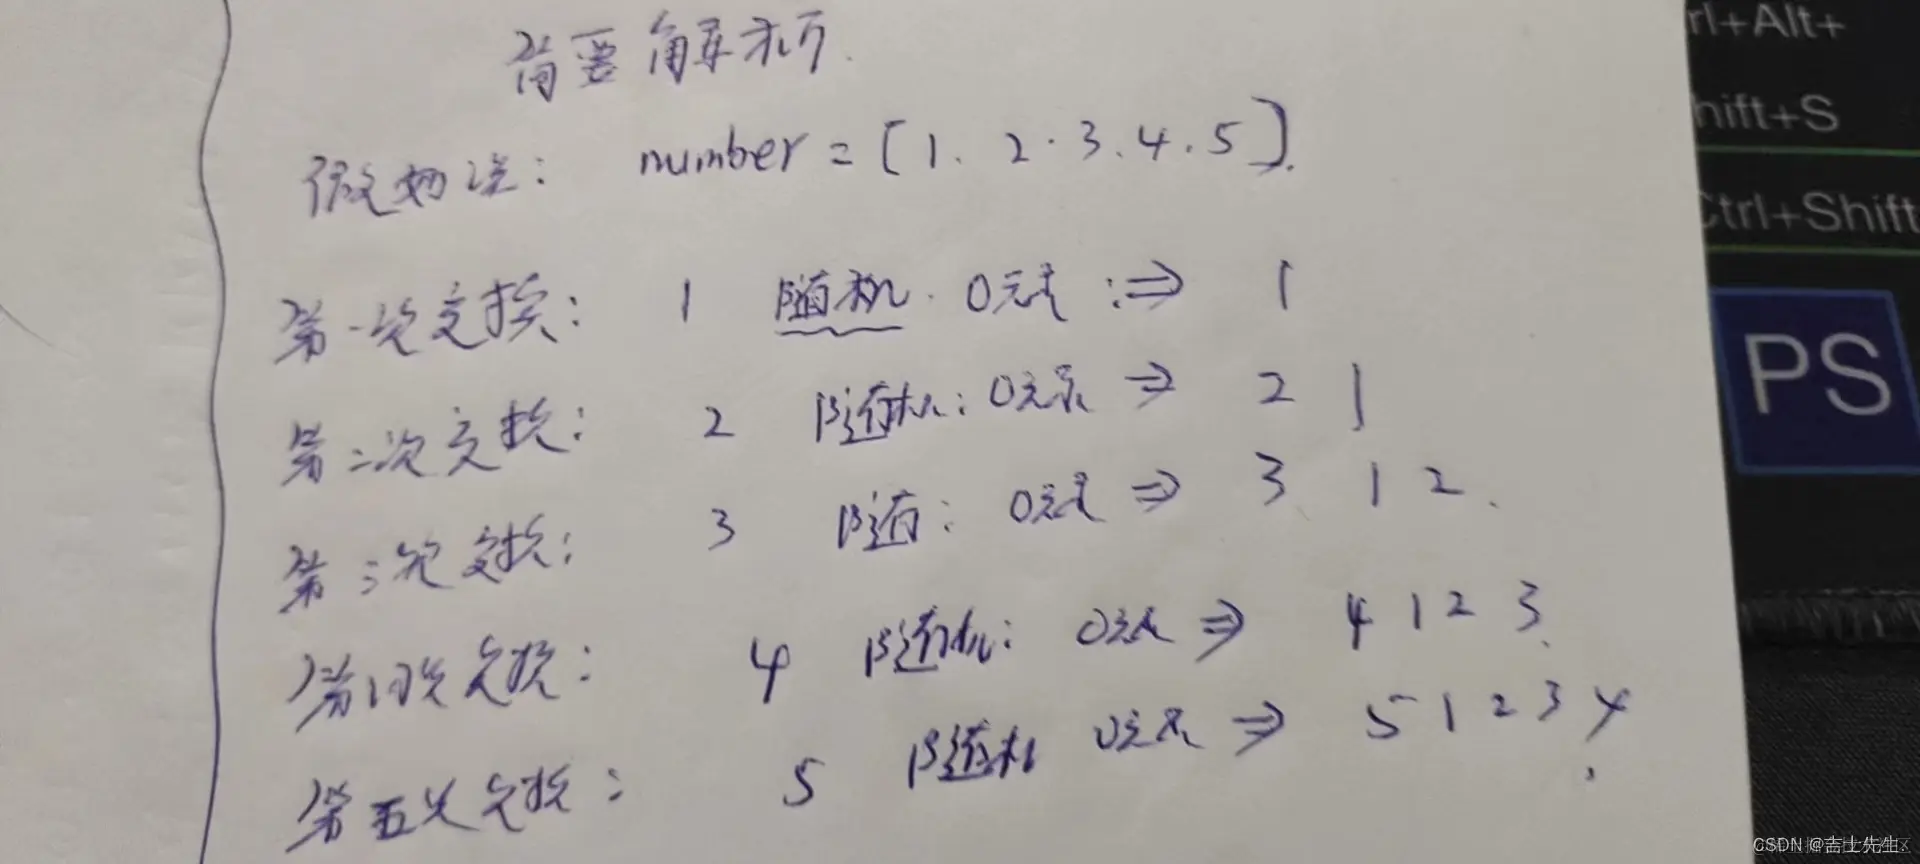 简要解析.
假如说: number = [1. 2. 3. 4. 5].
第一次交换: 1 随机. 0元素 :⇒ 1
第二次交换: 2 随机: 0元素 ⇒ 2 1
第三次交换: 3 随: 0元素 ⇒ 3 1 2.
第四次交换: 4 随机: 0元素 ⇒ 4 1 2 3.
第五次交换: 5 随机 0元素 ⇒ 5 1 2 3 4.
rl+Alt+
hift+S
Ctrl+Shift
PS
CSDN @吉士先生